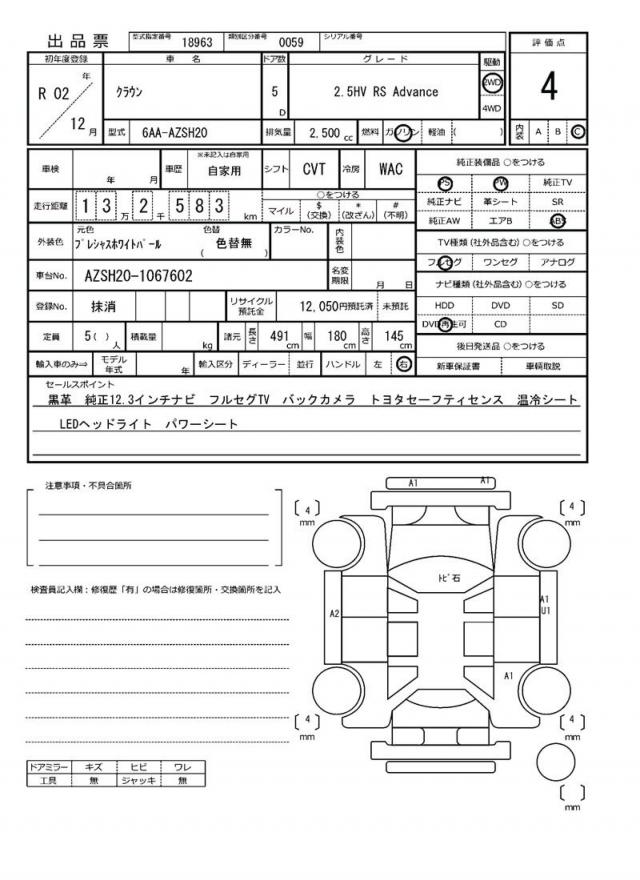 出品票 型式指定番号 18963 類別区分番号 0059 シリアル番号
初年度登録 車名 ドア数 グレード 駆動 評価点
R 02 年 12 月 クラウン 5 D 2.5HV RS Advance 2WD 4WD 4
型式 6AA-AZSH20 排気量 2,500 cc 燃料 ガソリン 軽油 ( ) 内装 A B C
車検 年 月 車歴 ※未記入は自家用 自家用 シフト CVT 冷房 WAC
走行距離 1 3 万 2 千 5 8 3 km ○をつける マイル $ (交換) * (改ざん) # (不明)
外装色 元色 プレシャスホワイトパール 色替 ( 色替無 ) カラーNo. 内装色
車台No. AZSH20-1067602 名変期限 月 日
登録No. 抹消 リサイクル預託金 12,050円預託済 未預託
定員 5( ) 人 積載量 kg 諸元 長さ 491 cm 幅 180 cm 高さ 145 cm
輸入車のみ⇒ モデル年式 年 輸入区分 ディーラー 並行 ハンドル 左 右
純正装備品 ○をつける
PS PW 純正TV
純正ナビ 革シート SR
純正AW エアB ABS
TV種類(社外品含む) ○をつける
フルセグ ワンセグ アナログ
ナビ種類(社外品含む) ○をつける
HDD DVD SD
DVD再生可 CD
後日発送品 ○をつける
新車保証書 車輌取説
セールスポイント
黒革 純正12.3インチナビ フルセグTV バックカメラ トヨタセーフティセンス 温冷シート
LEDヘッドライト パワーシート
注意事項・不具合箇所
検査員記入欄：修復歴「有」の場合は修復箇所・交換箇所を記入
ドアミラー キズ ヒビ ワレ
工具 無 ジャッキ 無
A1 A1
4 mm
4 mm
トビ石
A2
A1
U1
A1
4 mm
4 mm
mm